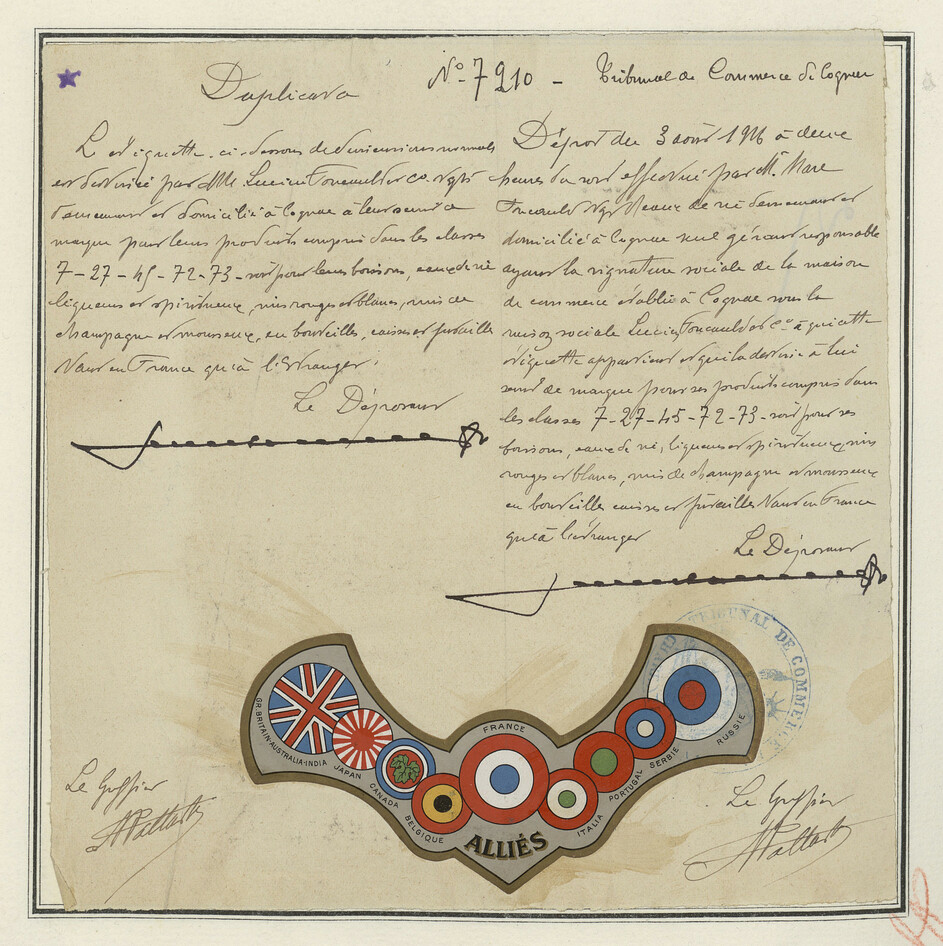 Duplicata
N° 7210 - Tribunal de Commerce de Cognac
L'étiquette ci-dessous de dimensions normales
est destinée par MM. Lucien Foucauld et Co. Ngts
demeurant et domicilié à Cognac à leur servir de
marque pour leurs produits compris dans les classes
7-27-45-72-73- soit pour leurs boissons, eaux de vie
liqueurs et spiritueux, vins rouges et blancs, vins de
champagne et mousseux, en bouteilles, caisses et futailles
tant en France qu'à l'Etranger.
Le Déposant
Dépôt du 3 août 1916 à deux
heures du soir effectué par M. Marc
Foucauld Ngt d'eaux de vie demeurant et
domicilié à Cognac seul gérant responsable
ayant la signature sociale de la maison
de commerce établie à Cognac sous la
raison sociale Lucien Foucauld et Co à qui cette
étiquette appartient et qui la destine à lui
servir de marque pour ses produits compris dans
les classes 7-27-45-72-73- soit pour ses
boissons, eaux de vie, liqueurs et spiritueux, vins
rouges et blancs, vins de champagne et mousseux
en bouteilles caisses et futailles tant en France
qu'à l'étranger
Le Déposant
TRIBUNAL DE COMMERCE
GR. BRITAIN-AUSTRALIA-INDIA
JAPAN
CANADA
BELGIQUE
FRANCE
ITALIA
PORTUGAL
SERBIE
RUSSIE
ALLIÉS
Le Greffier
Le Greffier